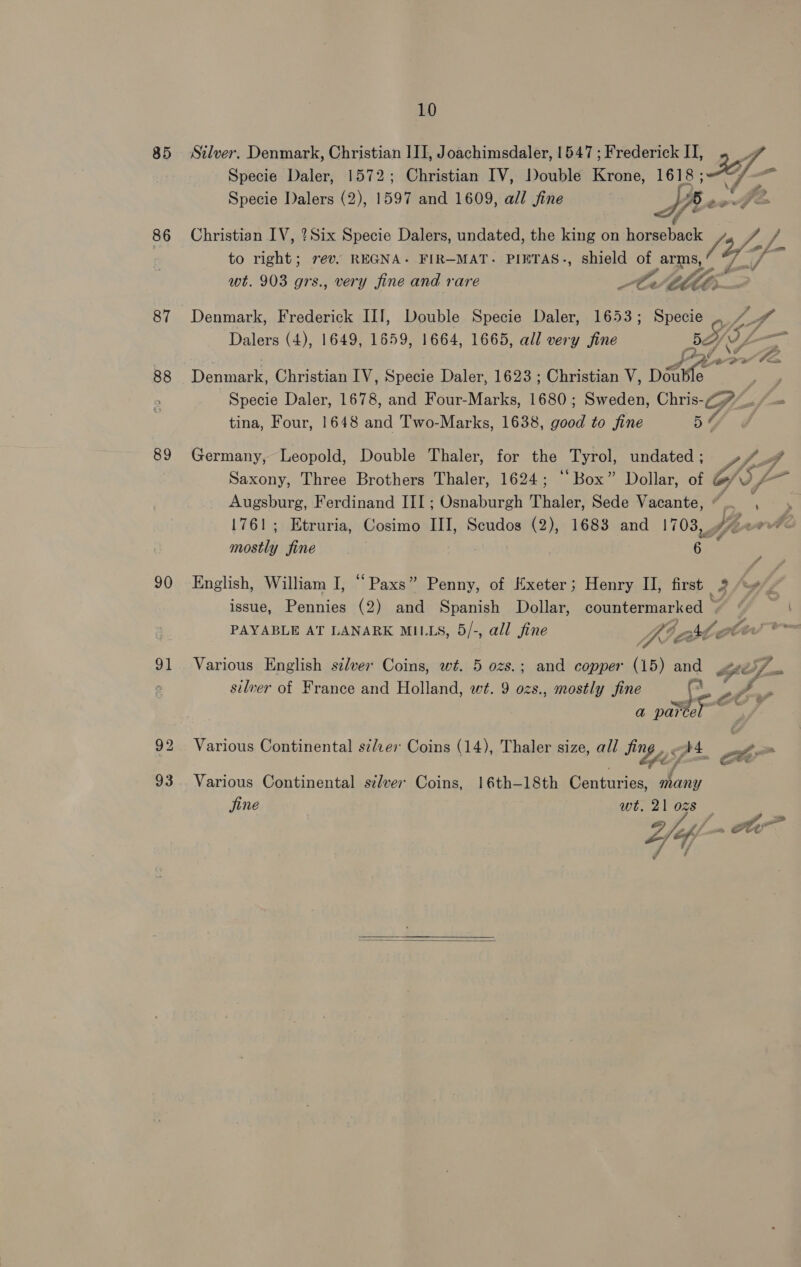 10
85 Silver. Denmark, Christian III, Joachimsdaler, 1547; Frederick II,
Specie Daler, 1572; Christian IV, Double Krone, 1618;
Specie Dalers (2), 1597 and 1609, all fine
86 Christian IV, ?Six Specie Dalers, undated, the king on horseback
to right; rev. REGNA· FIR–MAT· PIETAS·, shield of arms,
wt. 903 grs., very fine and rare
87 Denmark, Frederick III, Double Specie Daler, 1653; Specie
Dalers (4), 1649, 1659, 1664, 1665, all very fine 5
88 Denmark, Christian IV, Specie Daler, 1623; Christian V, Double
Specie Daler, 1678, and Four-Marks, 1680; Sweden, Chris-
tina, Four, 1648 and Two-Marks, 1638, good to fine 5
89 Germany, Leopold, Double Thaler, for the Tyrol, undated;
Saxony, Three Brothers Thaler, 1624; “Box” Dollar, of
Augsburg, Ferdinand III; Osnaburgh Thaler, Sede Vacante,
1761; Etruria, Cosimo III, Scudos (2), 1683 and 1703,
mostly fine 6
90 English, William I, “Paxs” Penny, of Exeter; Henry II, first
issue, Pennies (2) and Spanish Dollar, countermarked
PAYABLE AT LANARK MILLS, 5/-, all fine
91 Various English silver Coins, wt. 5 ozs.; and copper (15) and
silver of France and Holland, wt. 9 ozs., mostly fine
a parcel
92 Various Continental silver Coins (14), Thaler size, all fine, 14
93 Various Continental silver Coins, 16th–18th Centuries, many
fine wt. 21 ozs